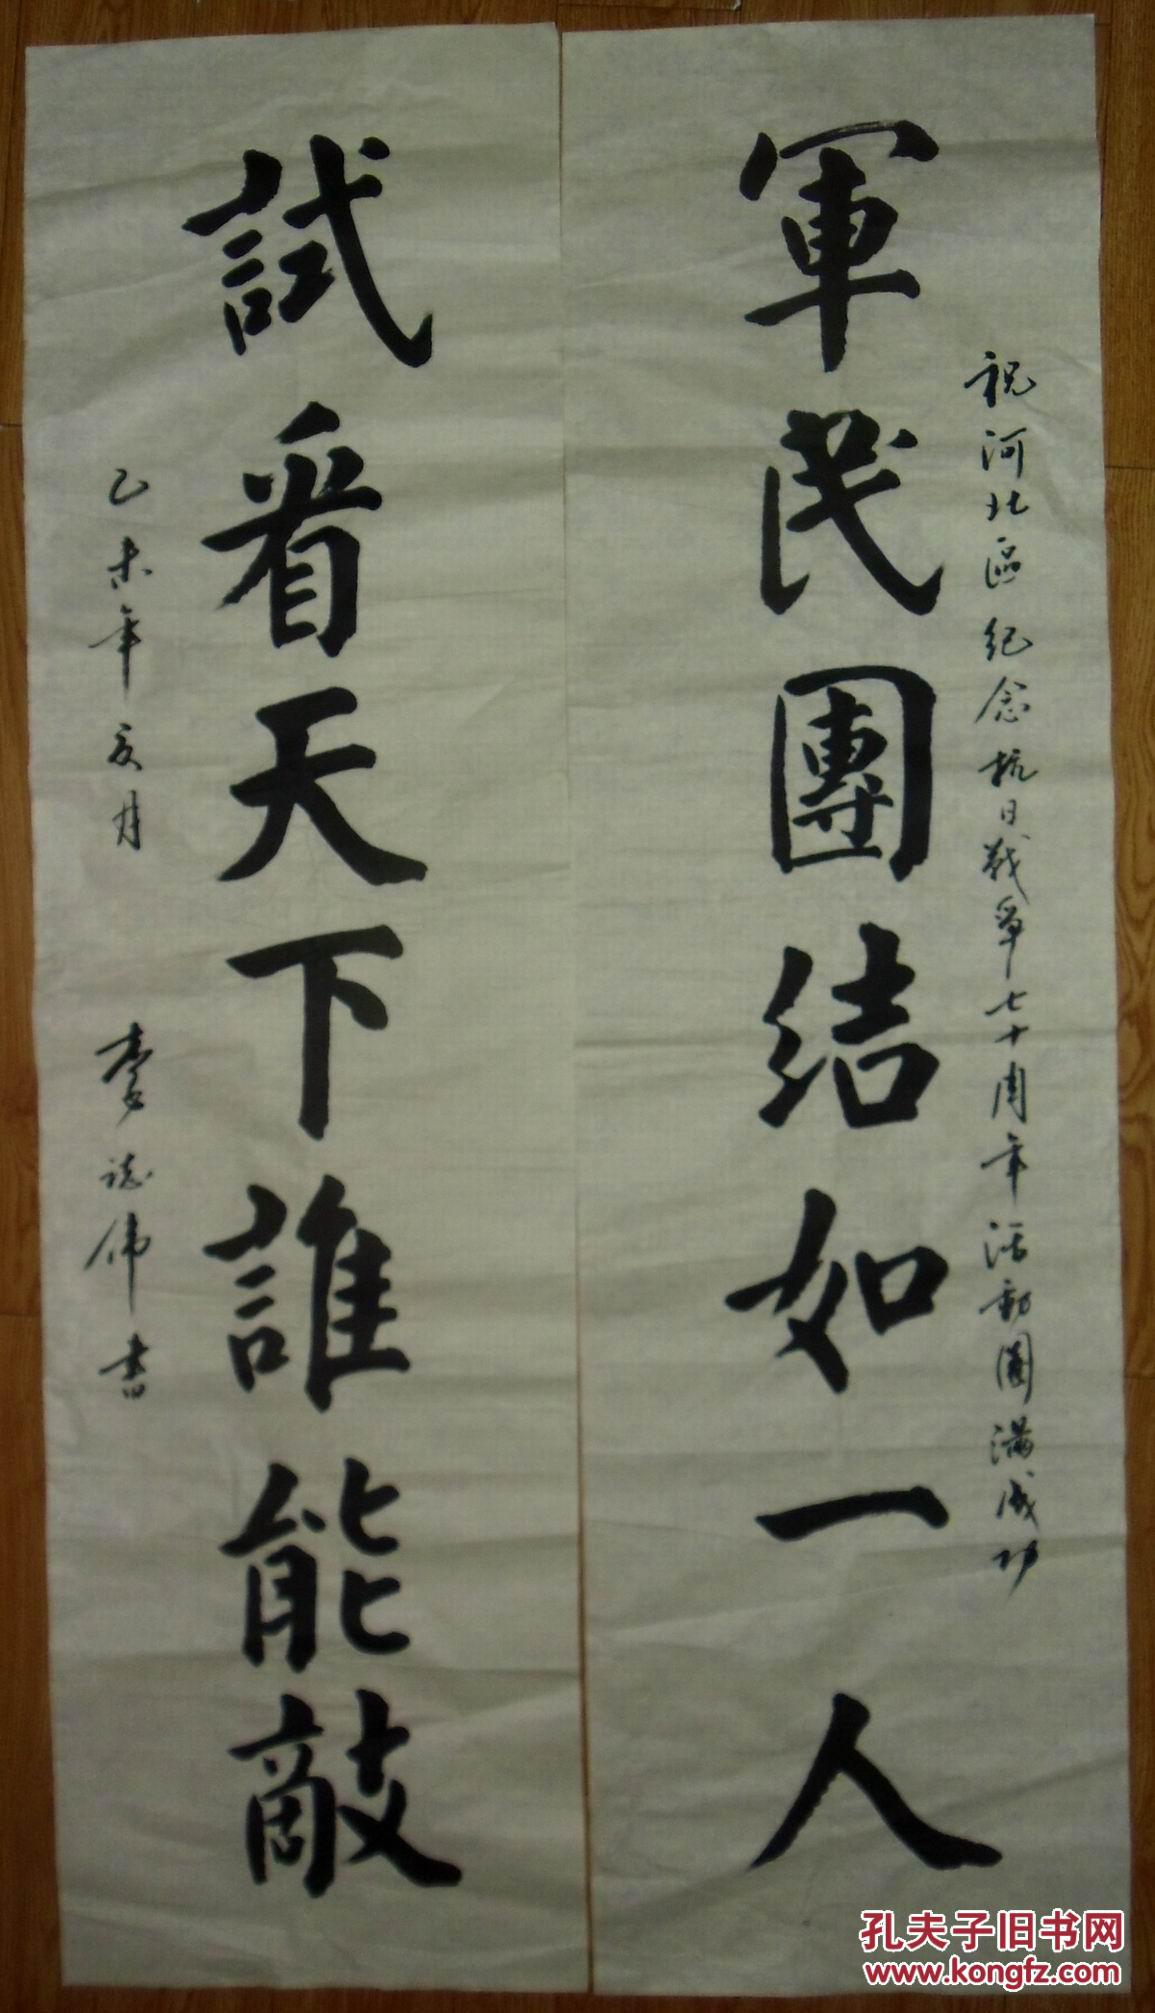 祝河北區纪念抗日战争七十周年活動圓满成功
軍民團结如一人
試看天下誰能敵
乙未年亥月
志偉書
孔夫子旧书网
www.kongfz.com